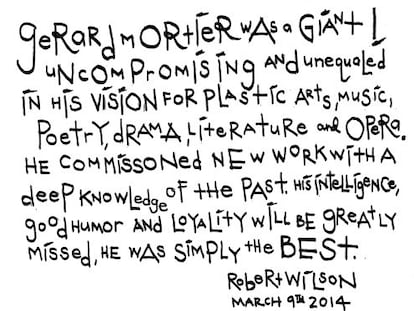 GERARD MORTIER WAS a GIANT!
UNCOMPROMISING AND unequaled
IN HIS VISION FOR PLASTIC ARTS, MUSIC,
POETRY, DRAMA, LITERATURE and OPERA.
HE COMMISSONED NEW WORK WITH A
deep KNOWLedge OF THE PAST. HIS INTELLIGENCE,
good HUMOR AND LOYALITY WILL BE GREATLY
MISSED, HE WAS SIMPLY the BEST.
ROBERT WILSON
MARCH 9TH 2014